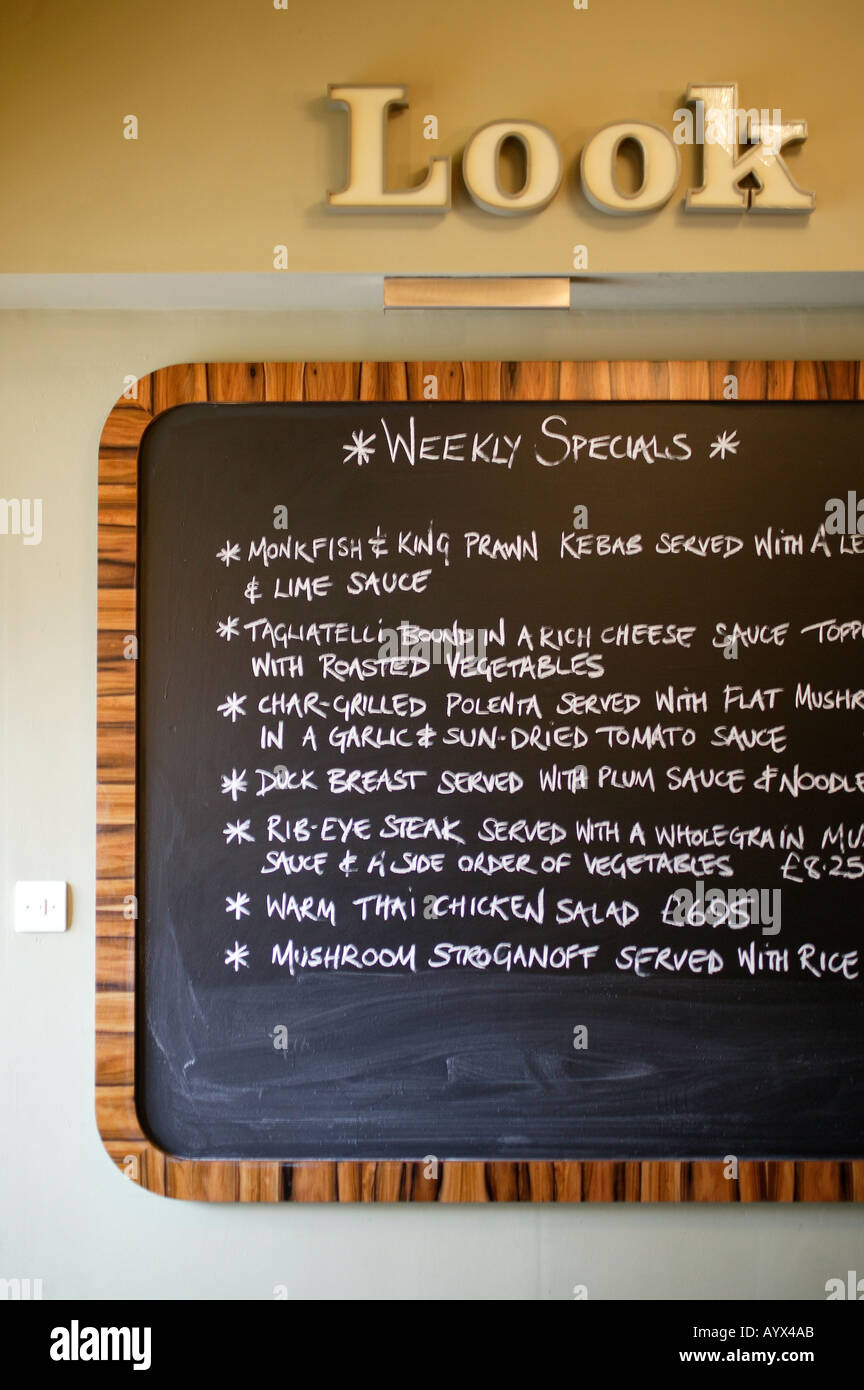 Look
* WEEKLY SPECIALS *
* MONKFISH & KING PRAWN KEBAB SERVED WITH A LE
& LIME SAUCE
* TAGLIATELLI BOUND IN A RICH CHEESE SAUCE TOPP
WITH ROASTED VEGETABLES
* CHAR-GRILLED POLENTA SERVED WITH FLAT MUSHR
IN A GARLIC & SUN-DRIED TOMATO SAUCE
* DUCK BREAST SERVED WITH PLUM SAUCE & NOODLE
* RIB-EYE STEAK SERVED WITH A WHOLEGRAIN MUS
SAUCE & A SIDE ORDER OF VEGETABLES £8.25
* WARM THAI CHICKEN SALAD £6.95
* MUSHROOM STROGANOFF SERVED WITH RICE
alamy
Image ID: AYX4AB
www.alamy.com